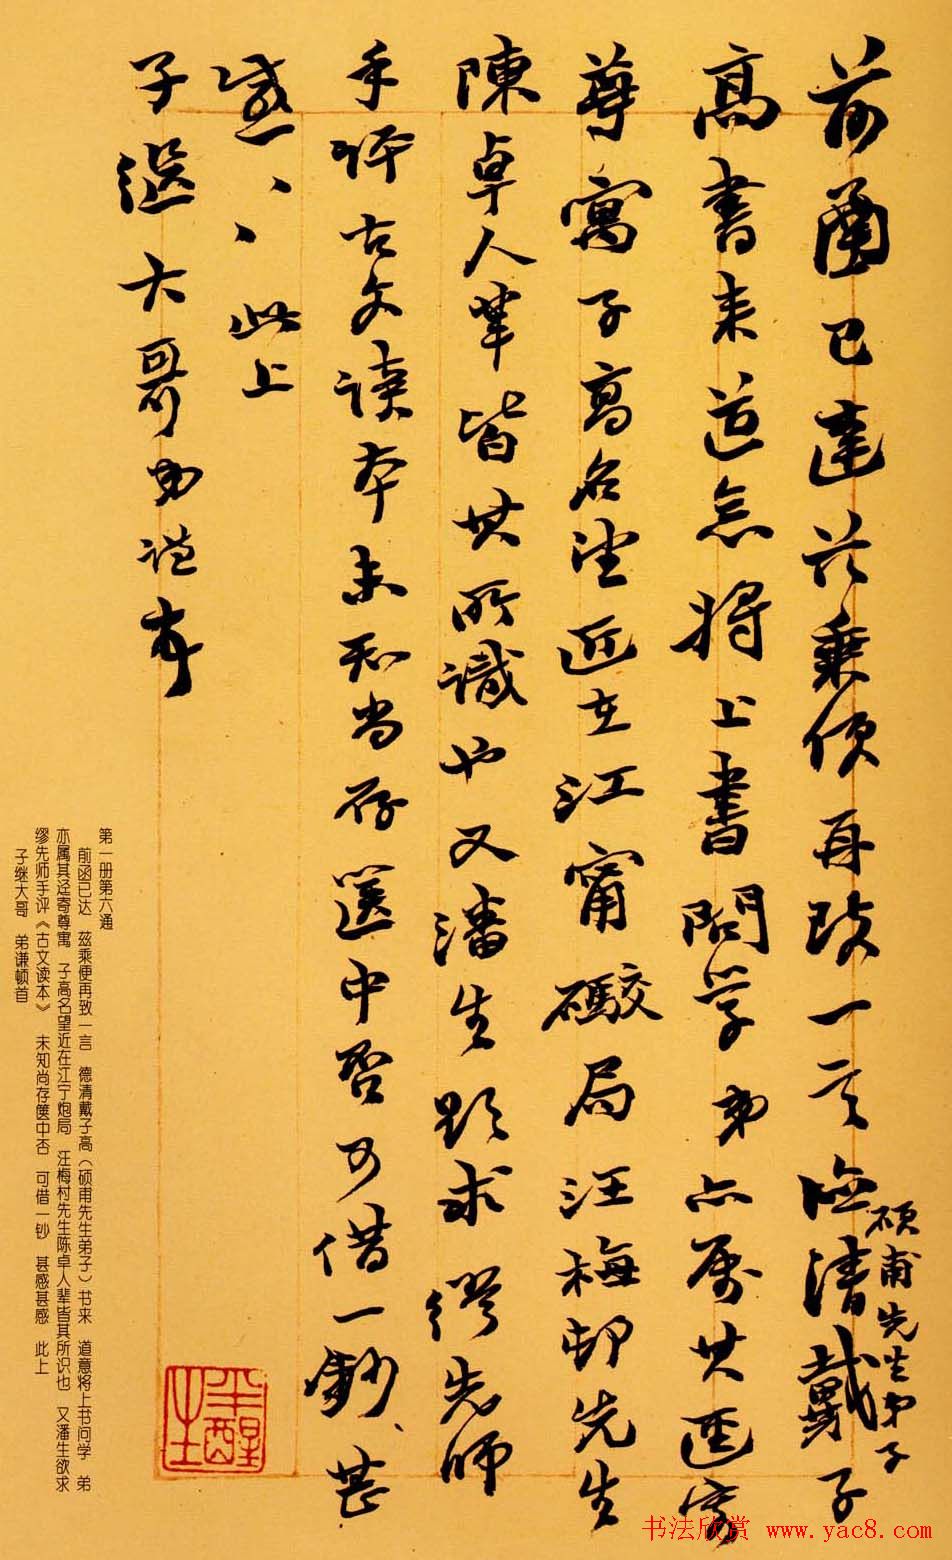 前函已達茲乘便再致一言德清戴子
碩甫先生弟子
高書来道意将上書問学弟亦属其迳寄
尊寓子高名望近在江甯礮局汪梅邨先生
陳卓人輩皆其所識也又潘生欲求繆先師
手評古文讀本未知尚存篋中否可借一鈔、甚
感、、此上
子繼大哥弟谦顿首
第一册第六通
前函已达 兹乘便再致一言 德清戴子高（硕甫先生弟子）书来 道意将上书问学 弟
亦属其迳寄尊寓 子高名望近在江宁炮局 汪梅村先生陈卓人辈皆其所识也 又潘生欲求
缪先师手评《古文读本》 未知尚存箧中否 可借一钞 甚感甚感 此上
子继大哥 弟谦顿首
书法欣赏 www.yac8.com